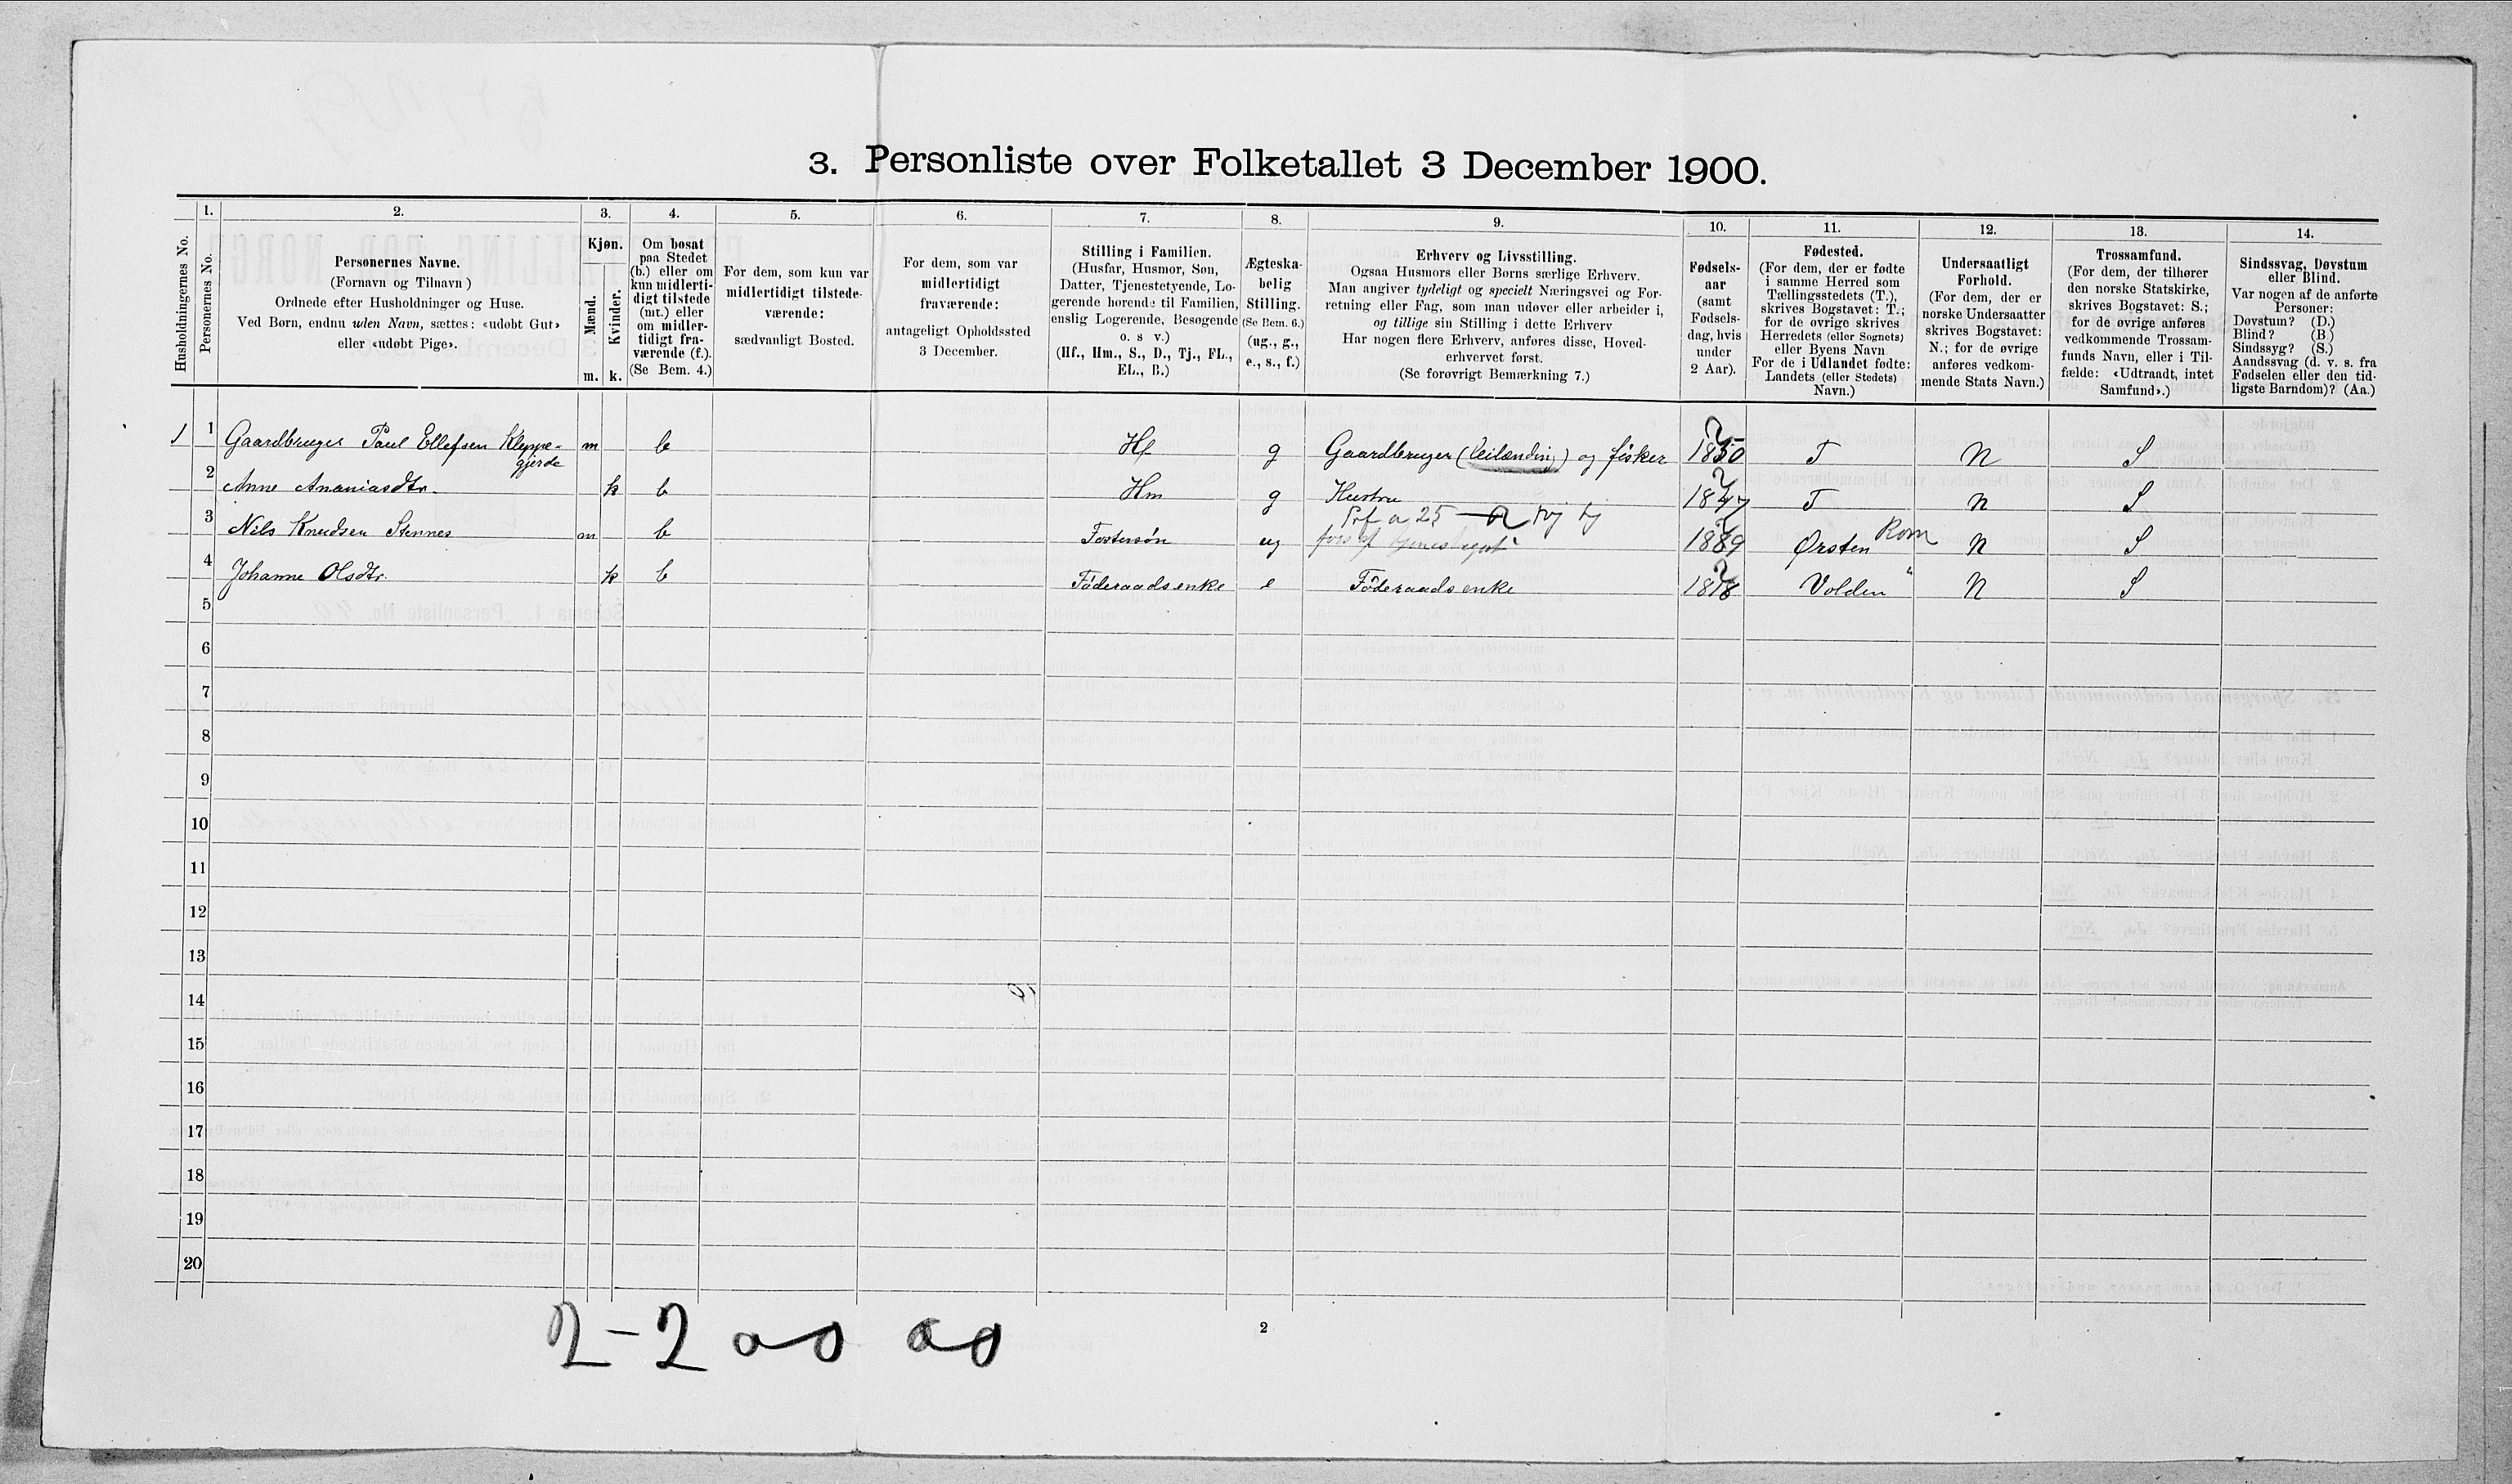 3. Personliste over Folketallet 3 December 1900.
Husholdningernes No.
1.
Personernes No.
2.
Personernes Navne.
(Fornavn og Tilnavn)
Ordnede efter Husholdninger og Huse.
Ved Børn, endnu uden Navn, sættes: «udøbt Gut»
eller «udøbt Pige».
3.
Kjøn.
Mænd.
Kvinder.
m.
k.
4.
Om bosat
paa Stedet
(b.) eller om
kun midlerti-
digt tilstede
(mt.) eller
om midler-
tidigt fra-
værende (f.).
(Se Bem. 4.)
5.
For dem, som kun var
midlertidigt tilstede-
værende:
sædvanligt Bosted.
6.
For dem, som var
midlertidigt
fraværende:
antageligt Opholdssted
3 December.
7.
Stilling i Familien.
(Husfar, Husmor, Søn,
Datter, Tjenestetyende, Lo-
gerende hørende til Familien,
enslig Logerende, Besøgende
o. s v.)
(Hf., Hm., S., D., Tj., FL.,
EL., B.)
8.
Ægteska-
belig
Stilling.
(Se Bem. 6.)
(ug., g.,
e., s., f.)
9.
Erhverv og Livsstilling.
Ogsaa Husmors eller Børns særlige Erhverv.
Man angiver tydeligt og specielt Næringsvei og For-
retning eller Fag, som man udøver eller arbeider i,
og tillige sin Stilling i dette Erhverv
Har nogen flere Erhverv, anføres disse, Hoved-
erhvervet først.
(Se forøvrigt Bemærkning 7.)
10.
Fødsels-
aar
(samt
Fødsels-
dag, hvis
under
2 Aar).
11.
Fødested.
(For dem, der er fødte
i samme Herred som
Tællingsstedets (T.),
skrives Bogstavet: T.;
for de øvrige skrives
Herredets (eller Sognets)
eller Byens Navn
For de i Udlandet fødte:
Landets (eller Stedets)
Navn.)
12.
Undersaatligt
Forhold.
(For dem, der er
norske Undersaatter
skrives Bogstavet:
N.; for de øvrige
anføres vedkom-
mende Stats Navn.)
13.
Trossamfund.
(For dem, der tilhører
den norske Statskirke,
skrives Bogstavet: S.;
for de øvrige anføres
vedkommende Trossam-
funds Navn, eller i Til-
fælde: «Udtraadt, intet
Samfund».)
14.
Sindssvag, Døvstum
eller Blind.
Var nogen af de anførte
Personer:
Døvstum? (D.)
Blind? (B)
Sindssyg? (S.)
Aandssvag (d. v. s. fra
Fødselen eller den tid-
ligste Barndom)? (Aa.)
1 1 Gaardbruger Paul Ellefsen Kleppe-
gjerde m b Hf g Gaardbruger (leilending) og fisker 1850 T N S
2 Anne Ananiasdtr. k b Hm g Hustru 1847 T N S
3 Nils Knudsen Stennes m b Fostersøn ug 1889 Ørsten Rom N S
4 Johanne Olsdtr. k b Føderaadsenke e Føderaadsenke 1818 Volden " N S
5
6
7
8
9
10
11
12
13
14
15
16
17
18
19
20
2-2
2